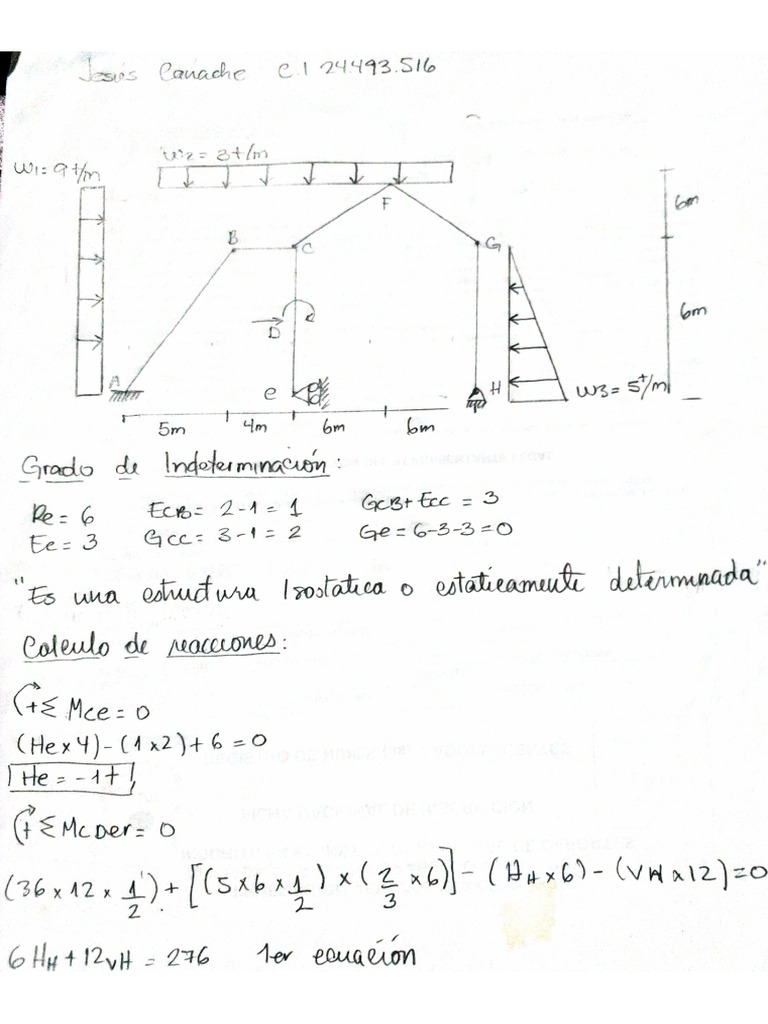 Jesús Canache C.I 24.493.516
W1=9t/m
W2=3t/m
F
B
C
G
D
A
e
H
W3=5t/m
6m
6m
5m 4m 6m 6m
Grado de Indeterminación:
Re=6 ECB=2-1=1 GCB+Ecc=3
Ee=3 Gcc=3-1=2 Ge=6-3-3=0
"Es una estructura Isostatica o estaticamente determinada"
Calculo de reacciones:
(+Σ Mce=0
(Hex4)-(1x2)+6=0
He=-1t
(+ΣMcDer=0
(36x12x1/2)+[(5x6x1/2)x(2/3x6)]-(HHx6)-(VHx12)=0
6HH+12VH=276 1er ecuación